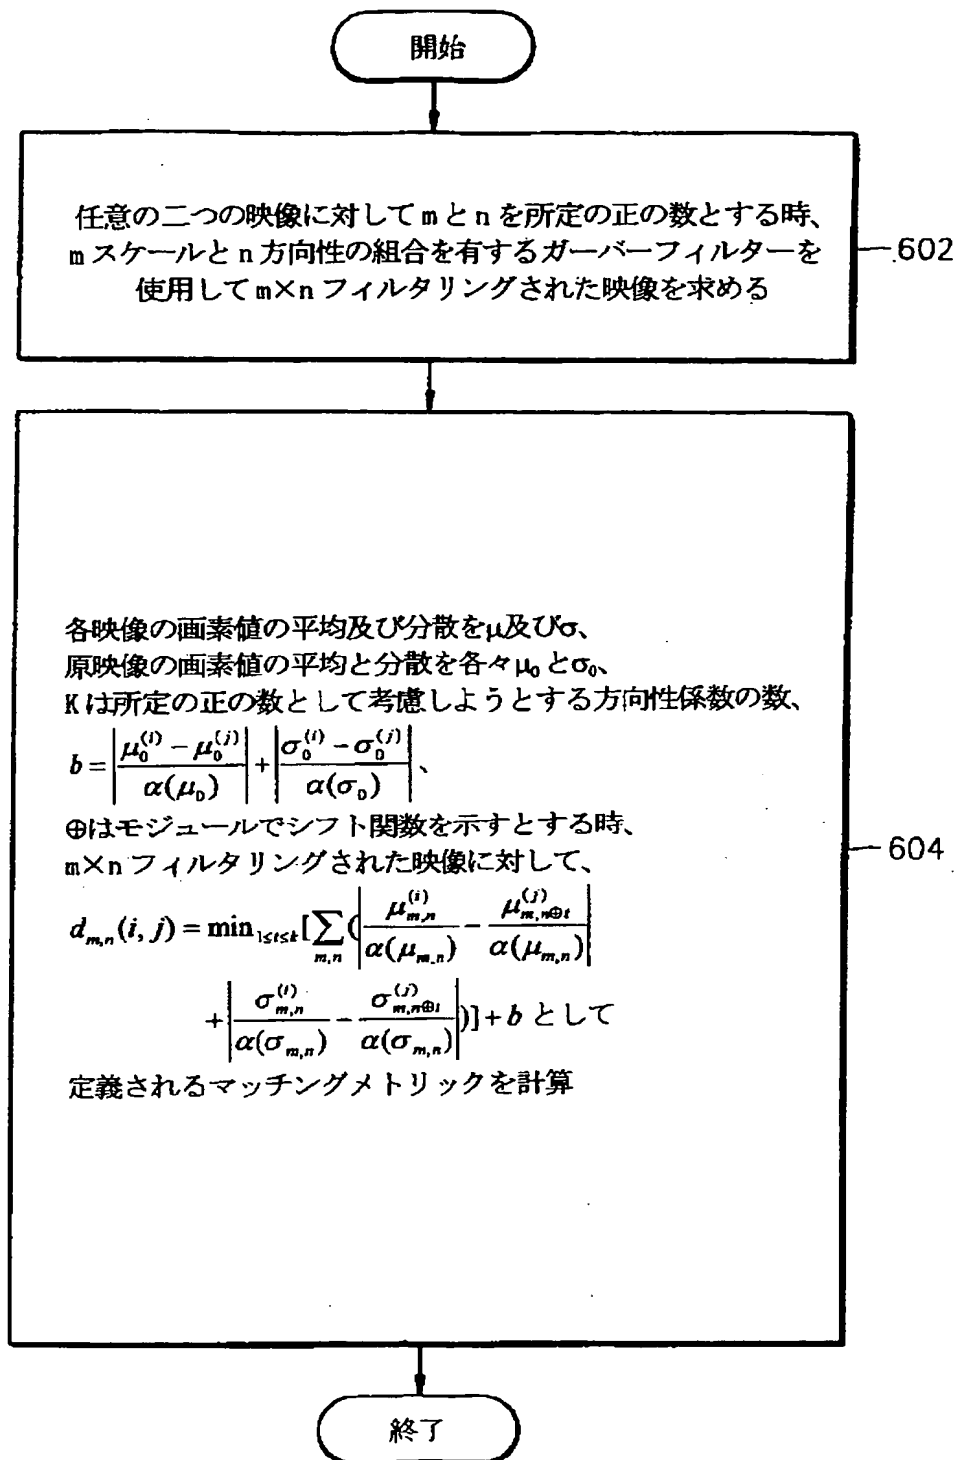 開始
任意の二つの映像に対してmとnを所定の正の数とする時、
mスケールとn方向性の組合を有するガーバーフィルターを
使用してm×nフィルタリングされた映像を求める
602
各映像の画素値の平均及び分散をμ及びσ、
原映像の画素値の平均と分散を各々μ₀とσ₀、
Kは所定の正の数として考慮しようとする方向性係数の数、
b = |(μ₀^(i) − μ₀^(j)) / α(μ₀)| + |(σ₀^(i) − σ₀^(j)) / α(σ₀)| 、
⊕はモジュールでシフト関数を示すとする時、
m×nフィルタリングされた映像に対して、
604
d_{m,n}(i, j) = min_{1≤t≤k}[∑_{m,n}(|μ_{m,n}^(i) / α(μ_{m,n}) − μ_{m,n⊕t}^(j) / α(μ_{m,n})|
+ |σ_{m,n}^(i) / α(σ_{m,n}) − σ_{m,n⊕t}^(j) / α(σ_{m,n})|)] + b として
定義されるマッチングメトリックを計算
終了